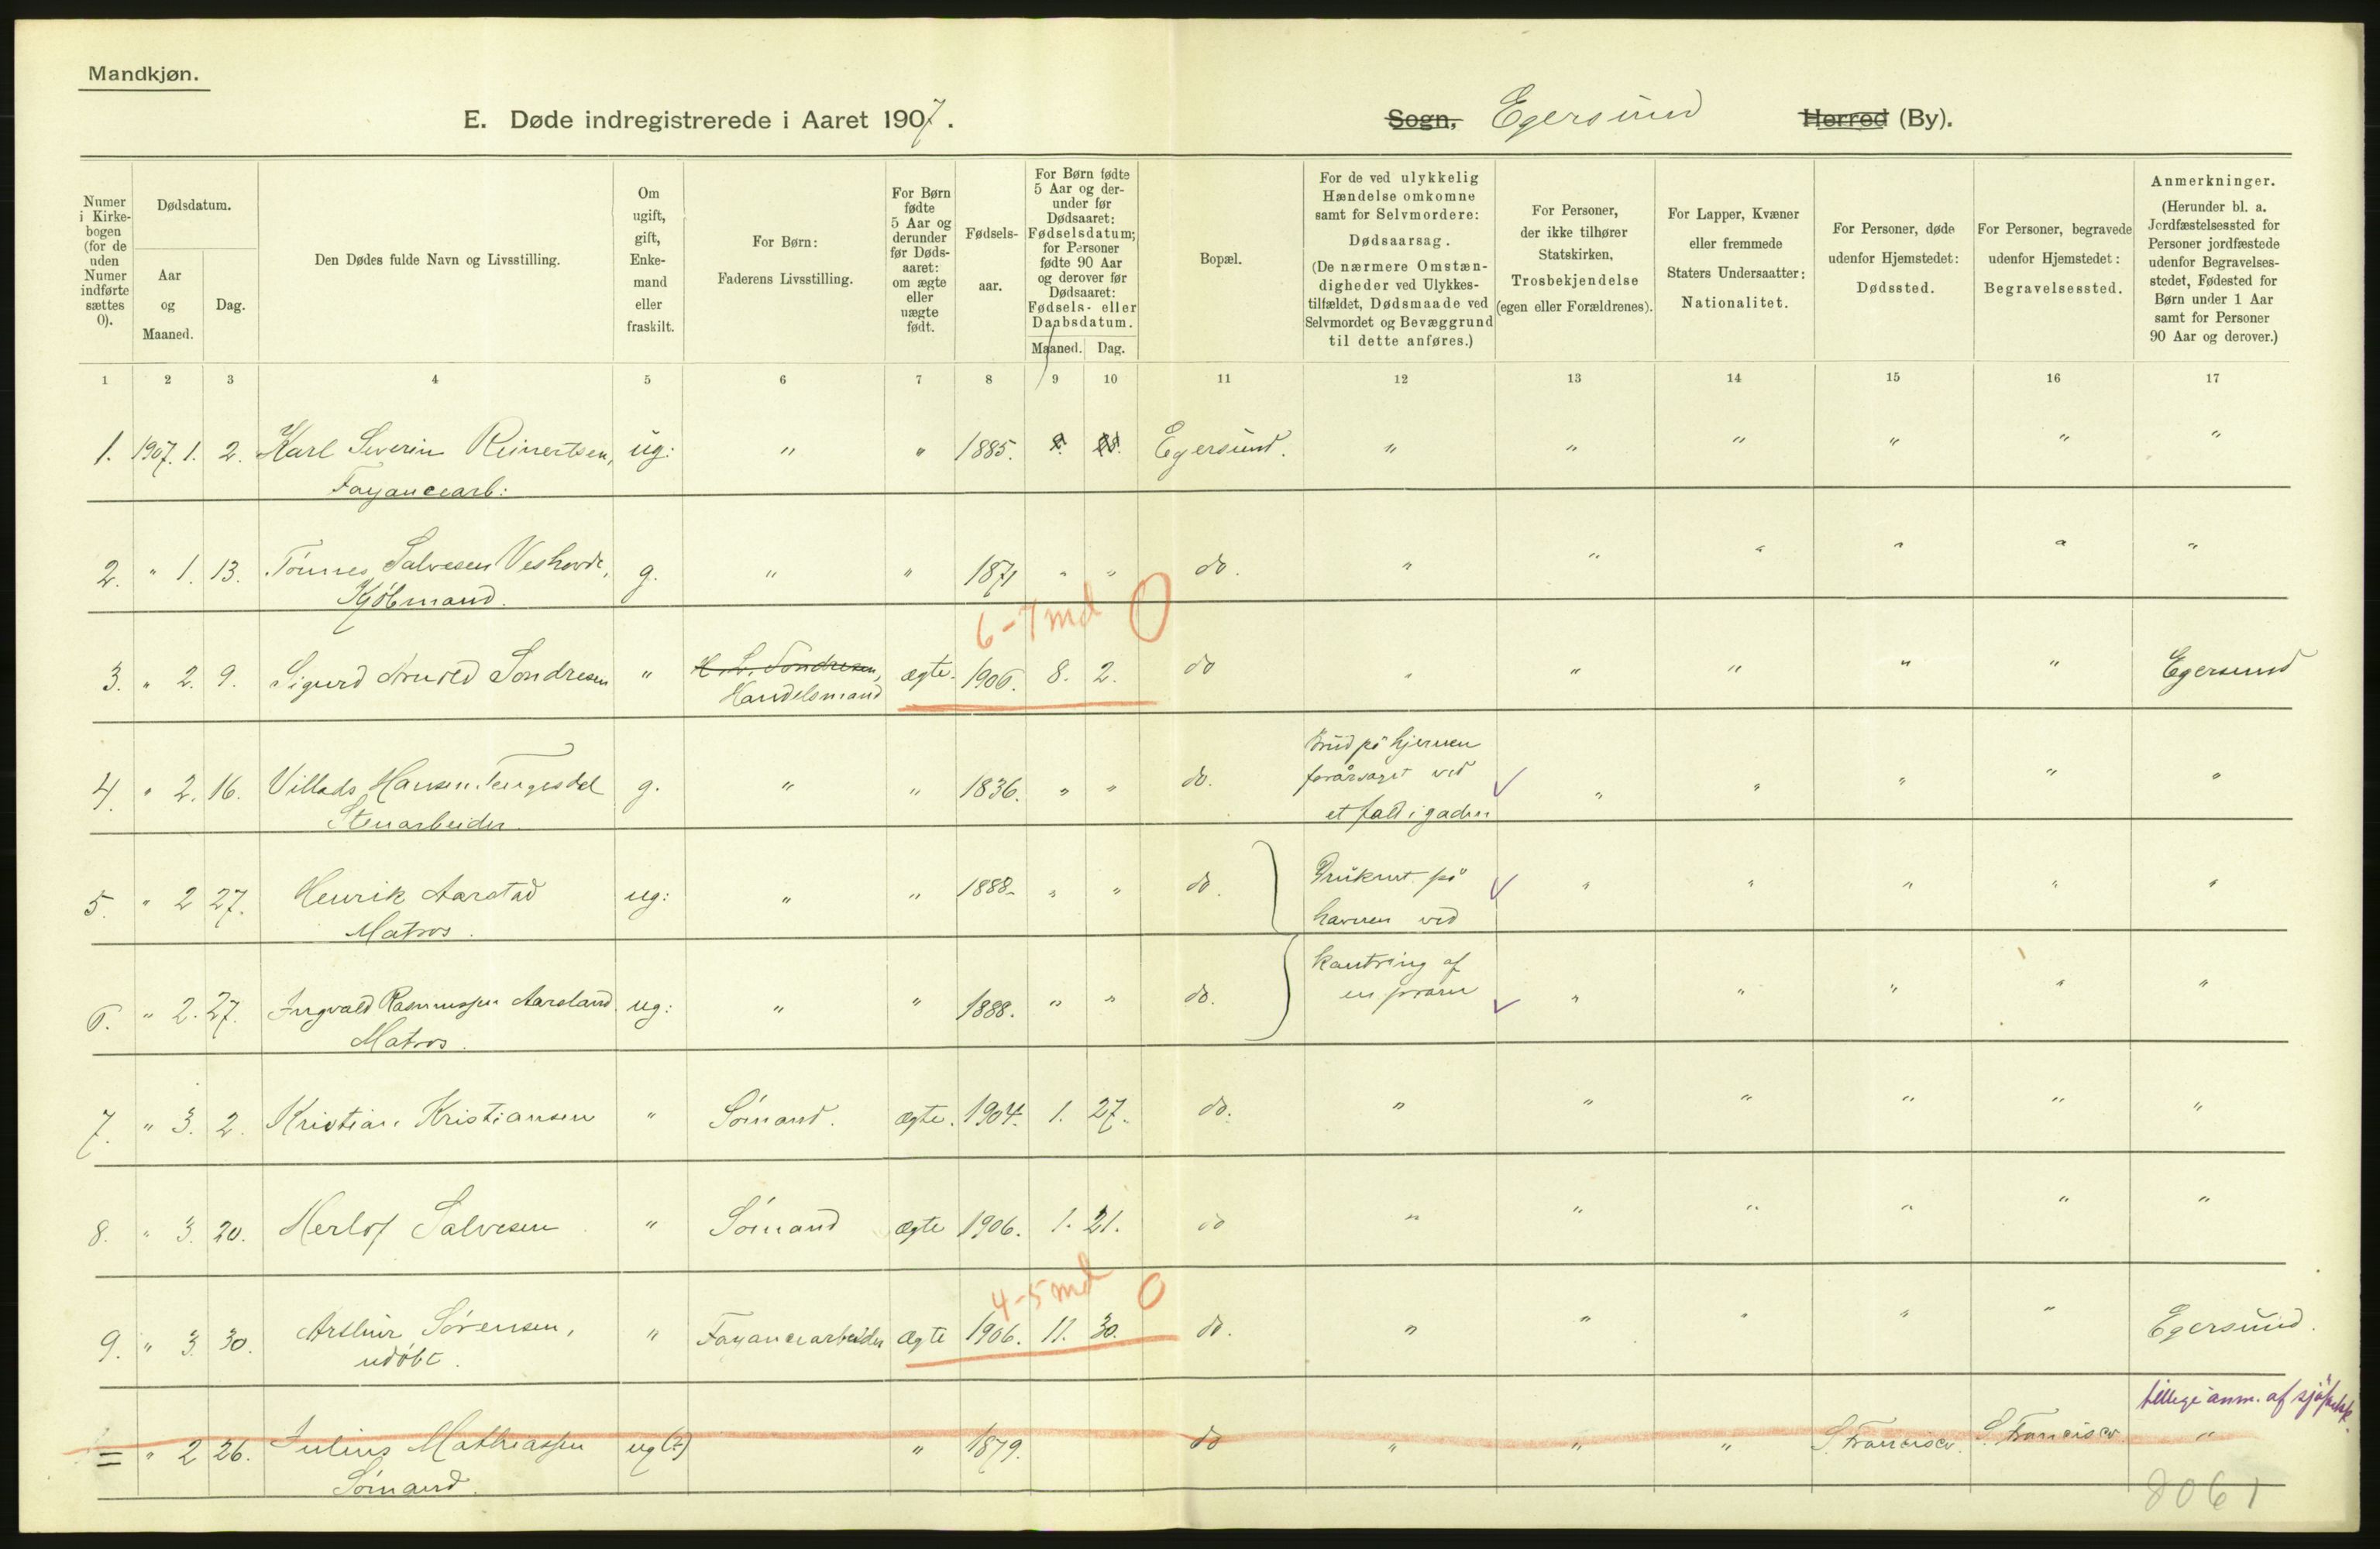 Mandkjøn.
E. Døde indregistrerede i Aaret 1907.
Sogn, Egersund Herred (By).
Numer i Kirke-bogen (for de uden Numer indførte sættes 0).
Dødsdatum.
Aar og Maaned.
Dag.
Den Dødes fulde Navn og Livsstilling.
Om ugift, gift, Enke-mand eller fraskilt.
For Børn: Faderens Livsstilling.
For Børn fødte 5 Aar og derunder før Døds-aaret: om ægte eller uægte født.
Fødsels-aar.
For Børn fødte 5 Aar og der-under før Dødsaaret: Fødselsdatum; for Personer fødte 90 Aar og derover før Dødsaaret: Fødsels- eller Daabsdatum.
Maaned. Dag.
Bopæl.
For de ved ulykkelig Hændelse omkomne samt for Selvmordere: Dødsaarsag. (De nærmere Omstæn-digheder ved Ulykkes-tilfældet, Dødsmaade ved Selvmordet og Bevæggrund til dette anføres.)
For Personer, der ikke tilhører Statskirken, Trosbekjendelse (egen eller Forældrenes).
For Lapper, Kvæner eller fremmede Staters Undersaatter: Nationalitet.
For Personer, døde udenfor Hjemstedet: Dødssted.
For Personer, begravede udenfor Hjemstedet: Begravelsessted.
Anmerkninger. (Herunder bl. a. Jordfæstelsessted for Personer jordfæstede udenfor Begravelses-stedet, Fødested for Børn under 1 Aar samt for Personer 90 Aar og derover.)
1 2 3 4 5 6 7 8 9 10 11 12 13 14 15 16 17
1. 1907. 1. 2. Karl Severin Reinertsen, ug: " " 1885. Egersund. " " " " " "
Fayancearb:
2. " 1. 13. Tønnes Salvesen g. " " 1871 " " do. " " " " " "
Kjøbmand.
6-7 md 0
3. " 2. 9. Sigurd Sondresen " H. L. Sondresen, ægte. 1906. 8. 2. do " " " " " Egersund
Handelsmand
4. " 2. 16. Villads Hansen Tengesdal g. " " 1836. " " do. Brud på hjernen forårsaget ved et fald i gaden " " " " "
Stenarbeider
5. " 2 27. Henrik Aarstad ug: " " 1888. " " do. Druknet på havnen ved " " " " "
Matros.
6. " 2. 27. Ingvald Rasmussen Aarsland ug: " " 1888. " " do. kantring af en pram " " " " "
Matros.
7. " 3. 2. Kristian Kristiansen " Sømand. ægte. 1904. 1. 27. do. " " " " " "
8. " 3. 20. Herlof Salvesen " Sømand ægte 1906. 1. 21. do " " " " " "
4-5 md 0
9. " 3. 30. Arthur Sørensen, " Fayancearbeider ægte 1906. 11. 30. do. " " " " " Egersund.
udøbt.
tillige anm. af
= " 2 26. Julius Mathiassen ug (?) " 1879. do " " " S. Francisco. S. Francisco "
Sømand.
8061